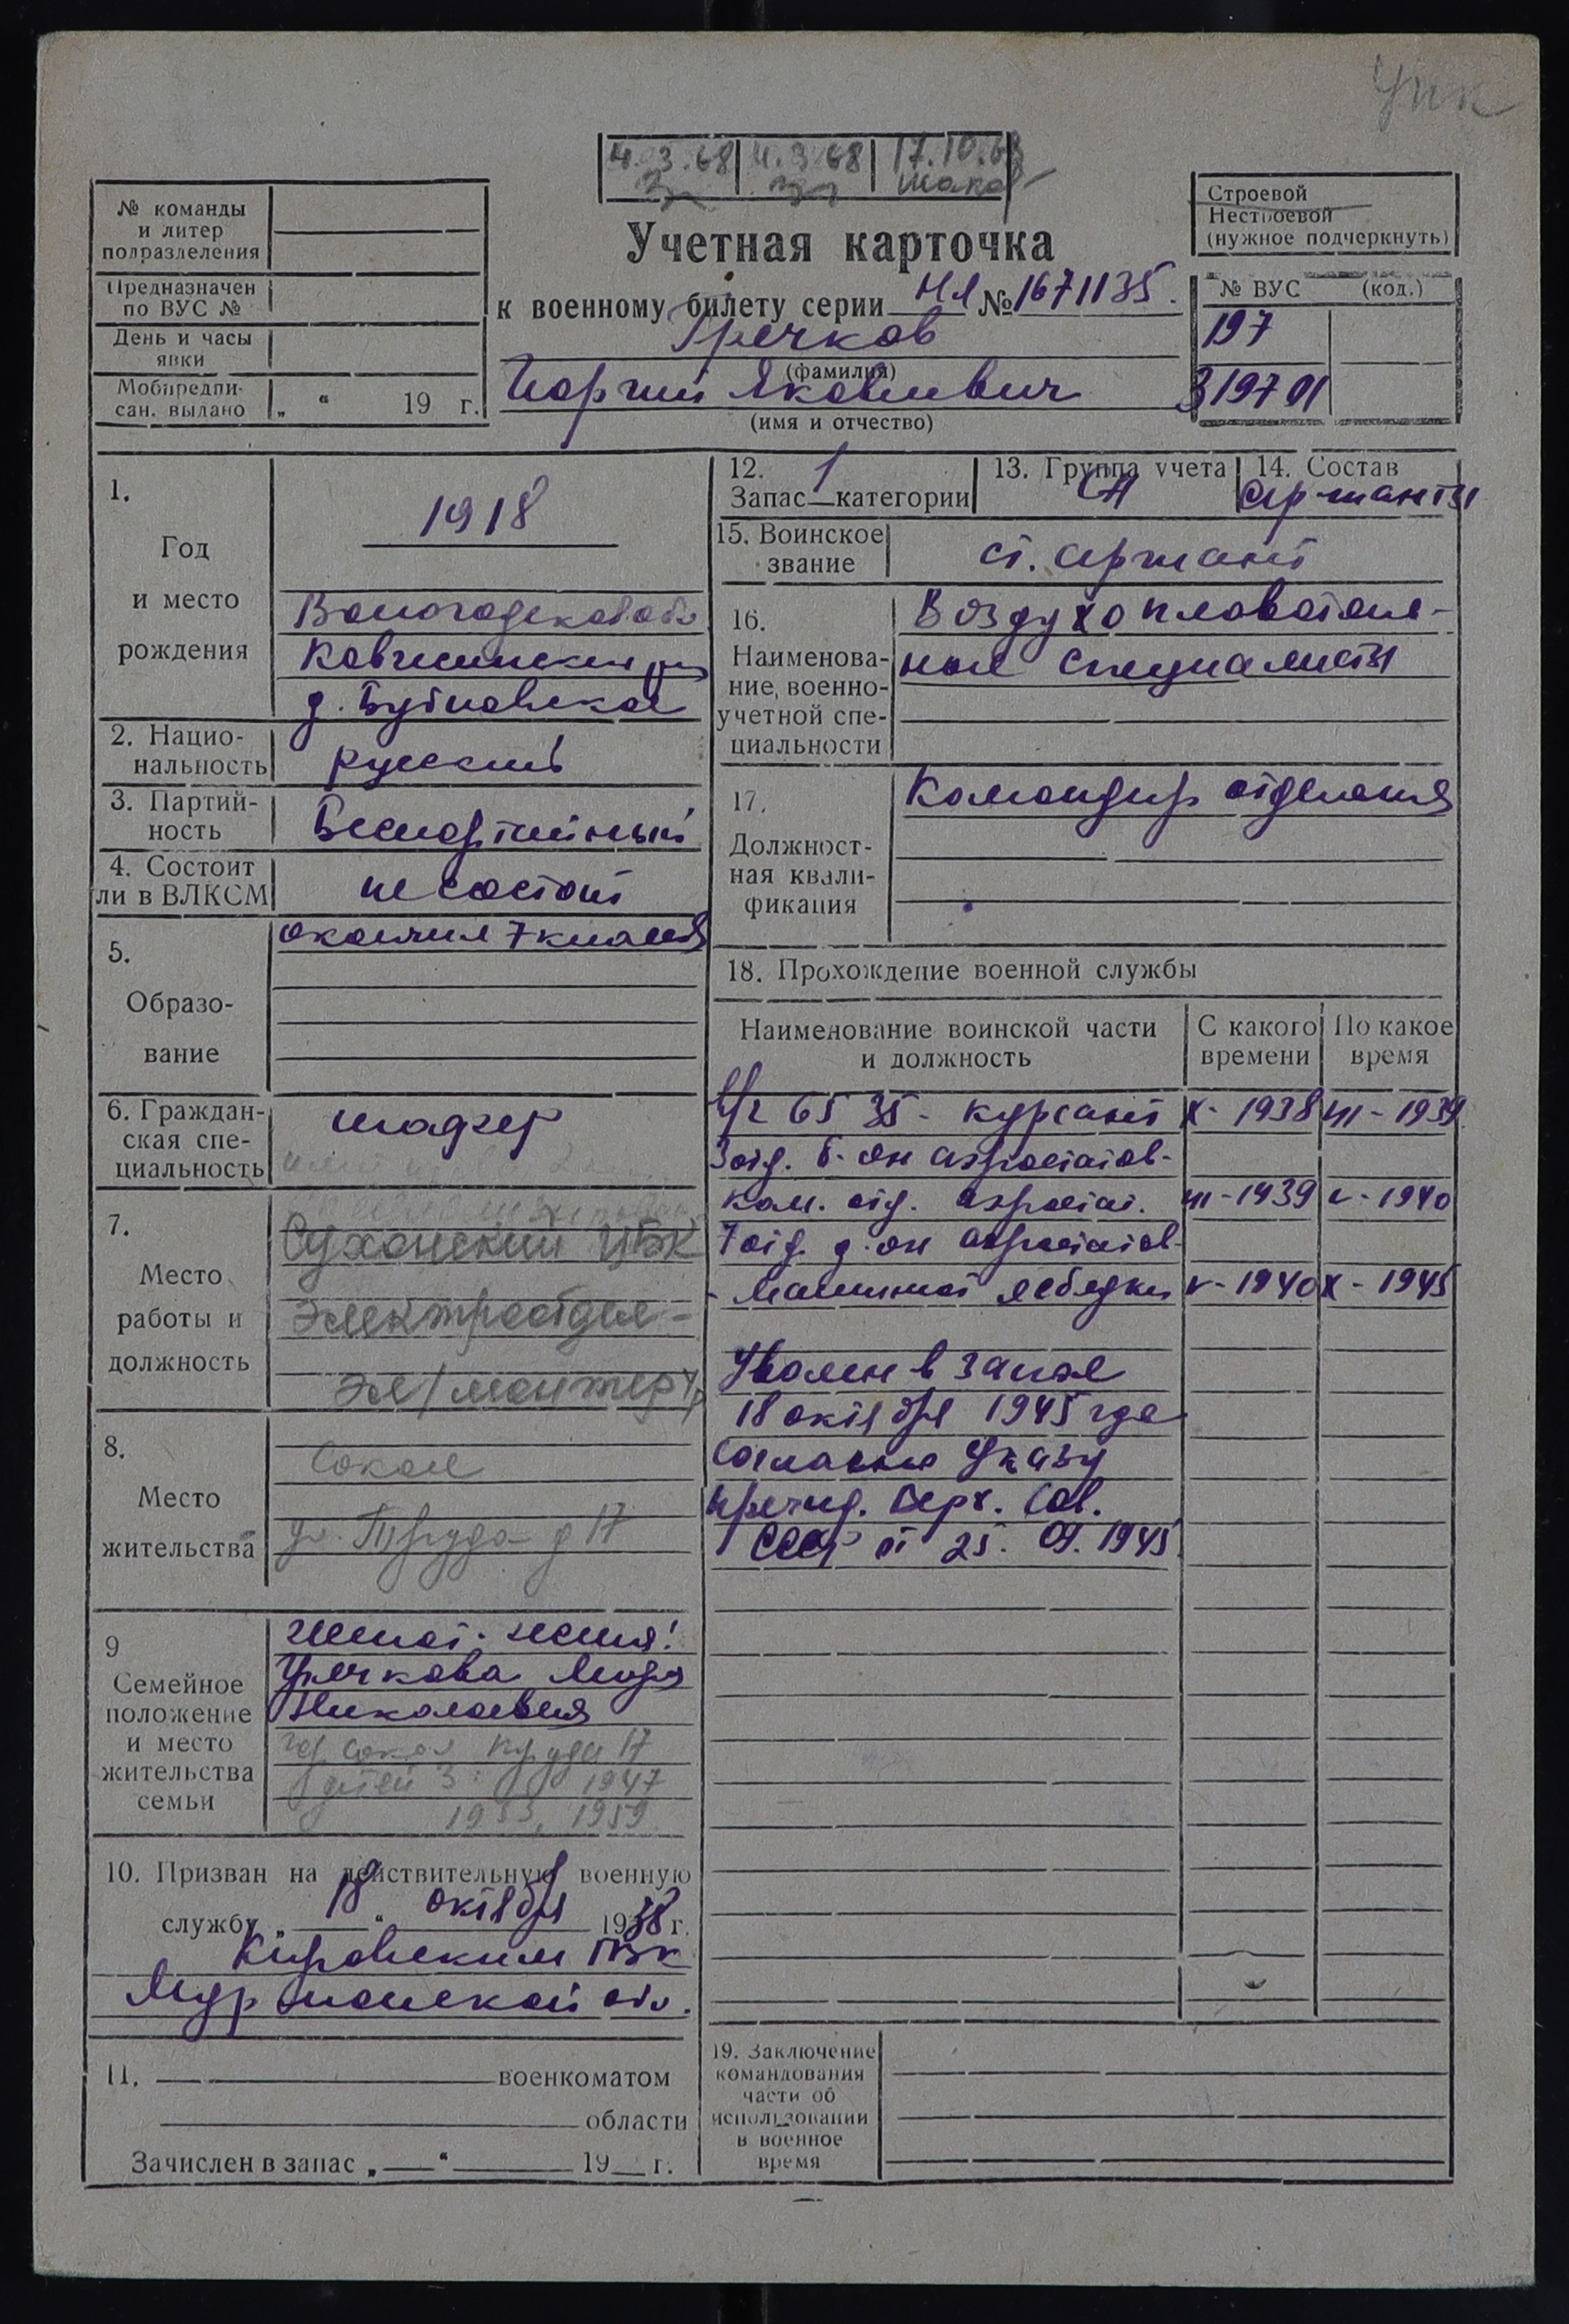 Упк
4.3.68 4.3.68 17.10.68
№ команды
и литер
подразделения
Предназначен
по ВУС №
День и часы
явки
Мобпредпи-
сан. выдано „ “ 19 г.
Строевой
Нестроевой
(нужное подчеркнуть)
№ ВУС (код.)
197
319701
Учетная карточка
к военному билету серии НЛ № 1671135.
Гречков
(фамилия)
Георгий Яковлевич
(имя и отчество)
1.
Год
и место
рождения
1918
Вологодская обл
д. Бубновская
2. Нацио-
нальность
русский
3. Партий-
ность
Беспартийный
4. Состоит
ли в ВЛКСМ
не состоит
5.
Образо-
вание
окончил 7 классов
6. Граждан-
ская спе-
циальность
7.
Место
работы и
должность
Сухонский ЦБК
Электроотдел-
эл/монтер
8.
Место
жительства
Сокол
ул. Труда д 17
9
Семейное
положение
и место
жительства
семьи
женат. жена:
Гречкова Мария
Николаевна
гор Сокол Труда 17
детей 3: 1947
1953, 1959
10. Призван на действительную военную
службу „ 18 “ октября 1938 г.
Кировским ГВК
Мурманской обл.
11. военкоматом
области
Зачислен в запас „ “ 19 г.
12. 1
Запас категории
13. Группа учета
СА
14. Состав
сержанты
15. Воинское
звание
ст. сержант
16.
Наименова-
ние, военно-
учетной спе-
циальности
Воздухоплаватель-
ные специалисты
17.
Должност-
ная квали-
фикация
Командир отделения
18. Прохождение военной службы
Наименование воинской части
и должность
С какого
времени
По какое
время
в/ч 6535 - курсант X - 1938 III - 1939
3 отд. б-он аэростатов-
ком. отд. аэростат. III - 1939 V - 1940
7 отд. д-он аэростатов
- машинист лебедки V - 1940 X - 1945
Уволен в запас
18 октября 1945 года
Согласно Указу
През ид. Верх. Сов.
СССР от 25. 09. 1945
19. Заключение
командования
части об
использовании
в военное
время